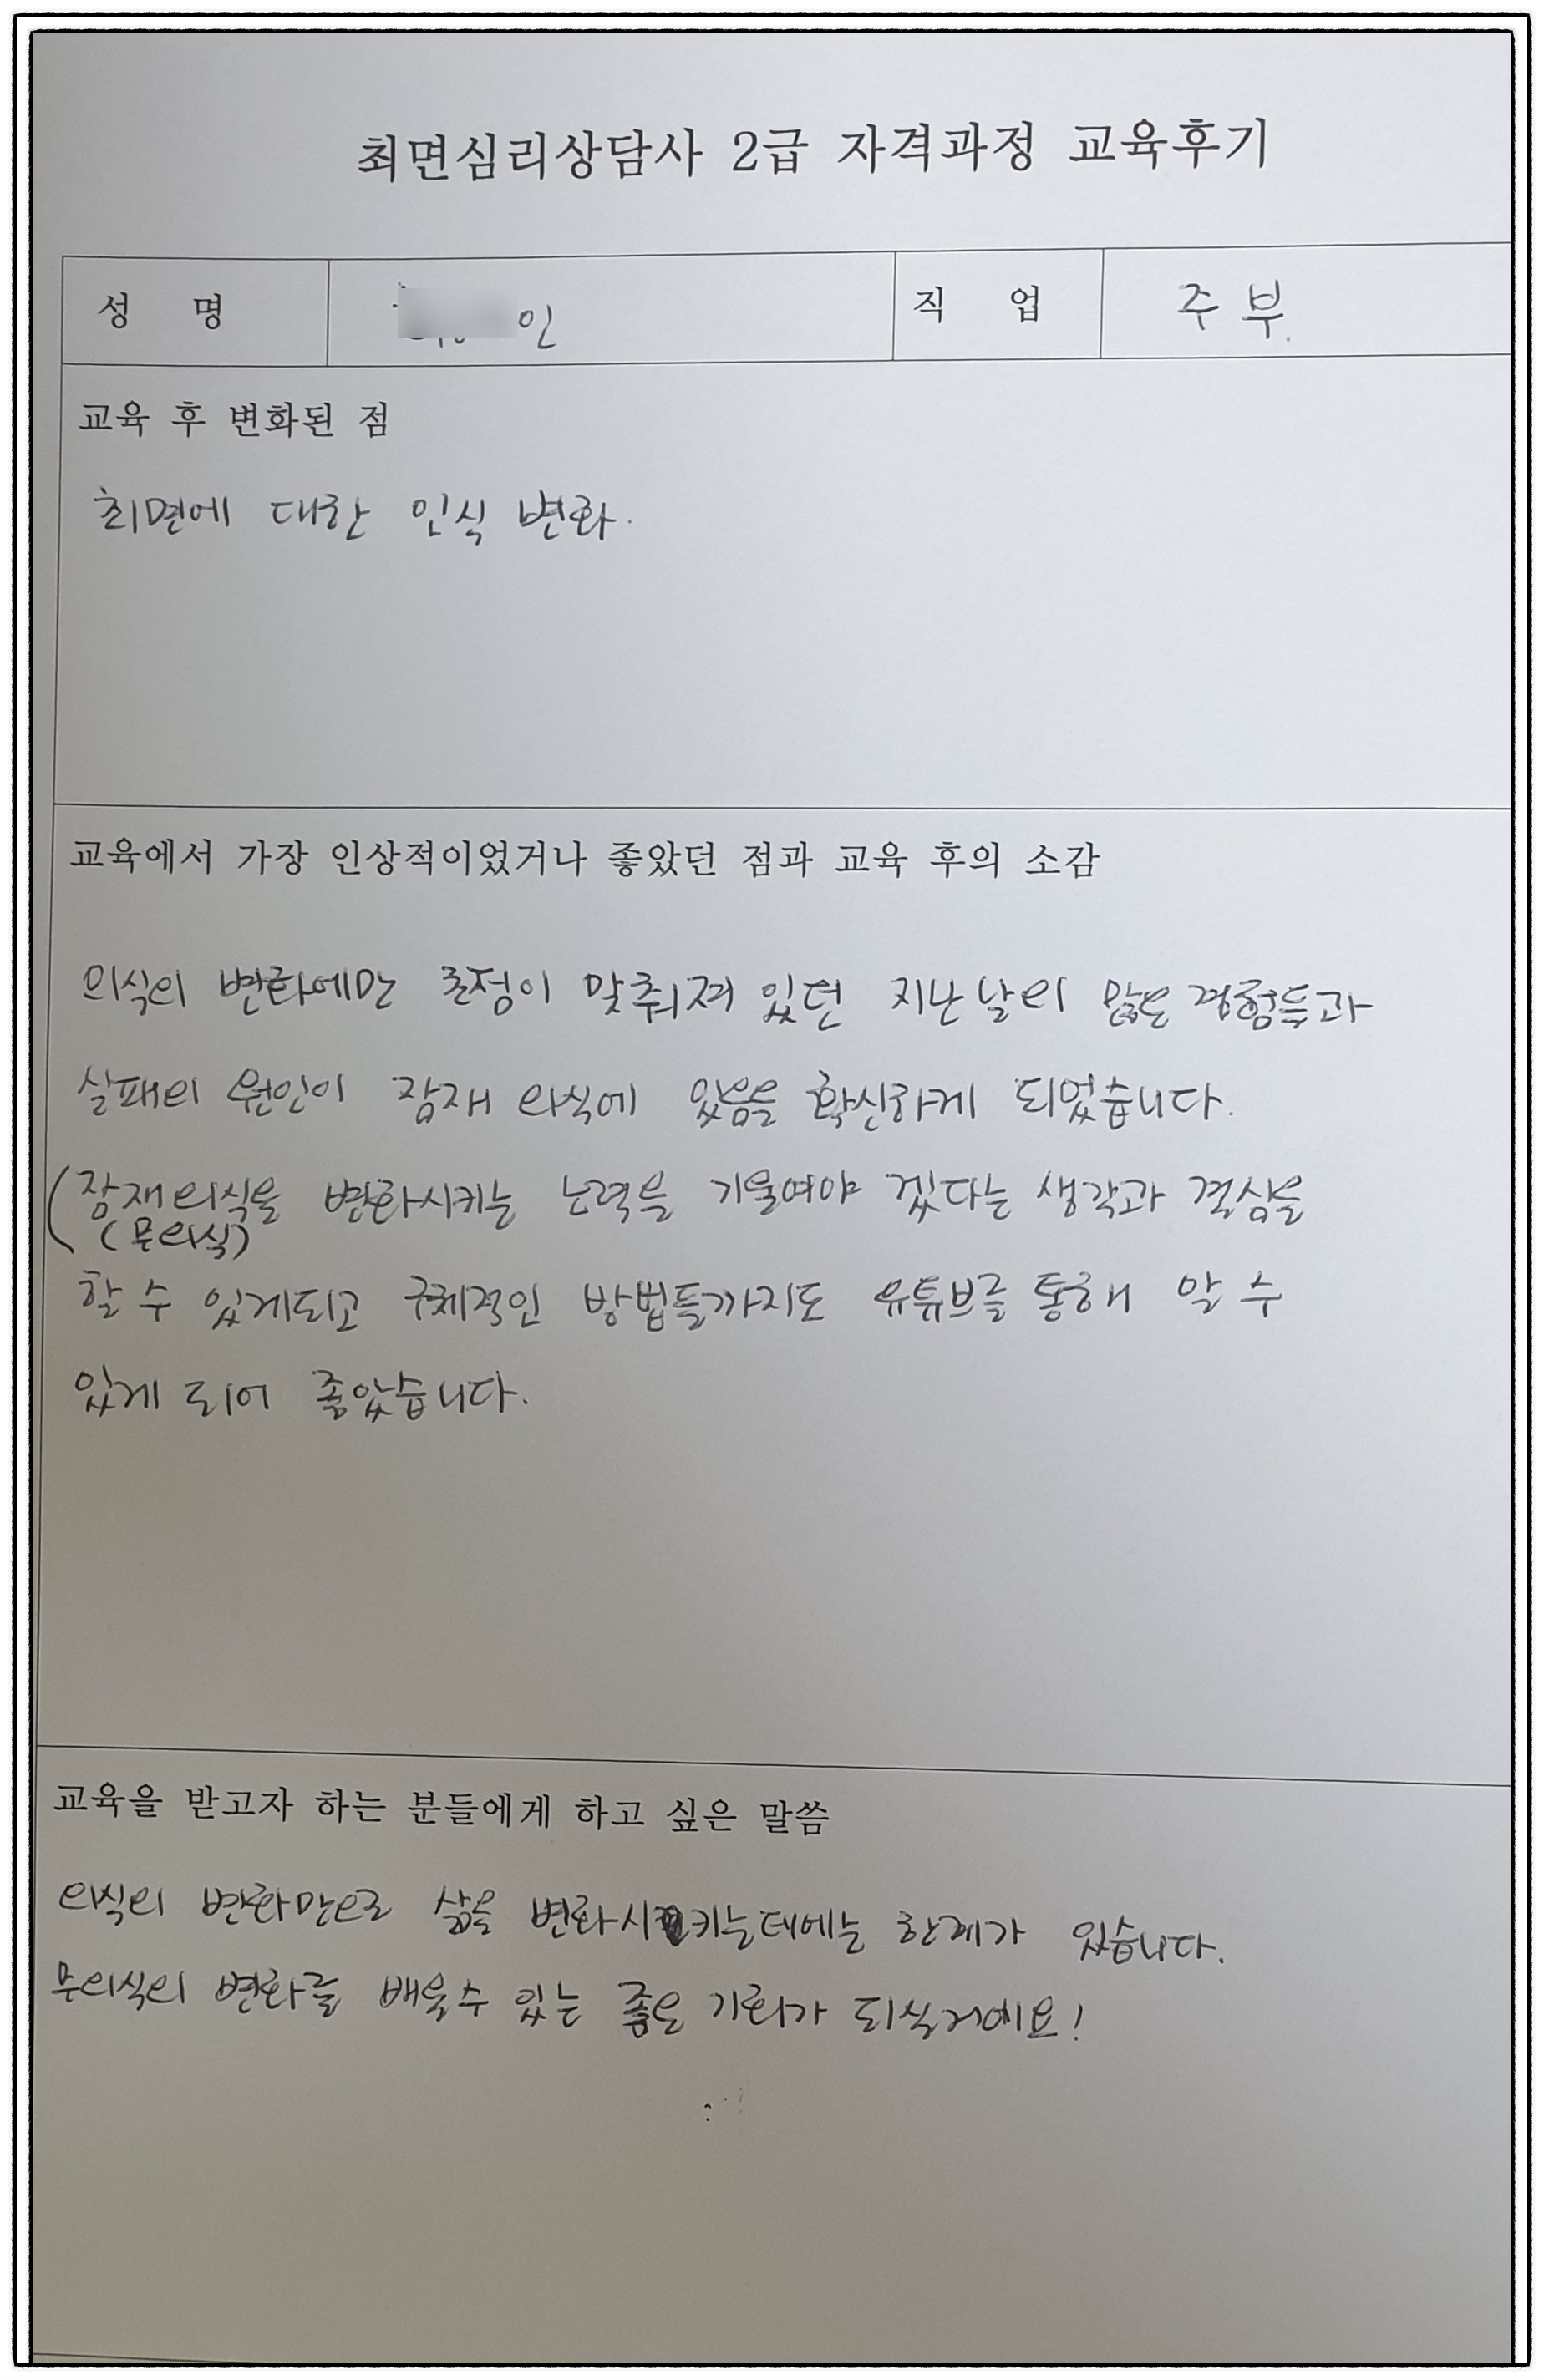 최면심리상담사 2급 자격과정 교육후기
성 명 인 직 업 주부.
교육 후 변화된 점
최면에 대한 인식 변화.
교육에서 가장 인상적이었거나 좋았던 점과 교육 후의 소감
의식의 변화에만 촛점이 맞춰져 있던 지난날의 많은 경험들과
실패의 원인이 잠재 의식에 있음을 확신하게 되었습니다.
(잠재의식을 변화시키는 노력을 기울여야 겠다는 생각과 결심을
(무의식)
할 수 있게되고 구체적인 방법들까지도 유튜브를 통해 알 수
있게 되어 좋았습니다.
교육을 받고자 하는 분들에게 하고 싶은 말씀
의식의 변화만으로 삶을 변화시키는데에는 한계가 있습니다.
무의식의 변화를 배울수 있는 좋은 기회가 되실거에요!